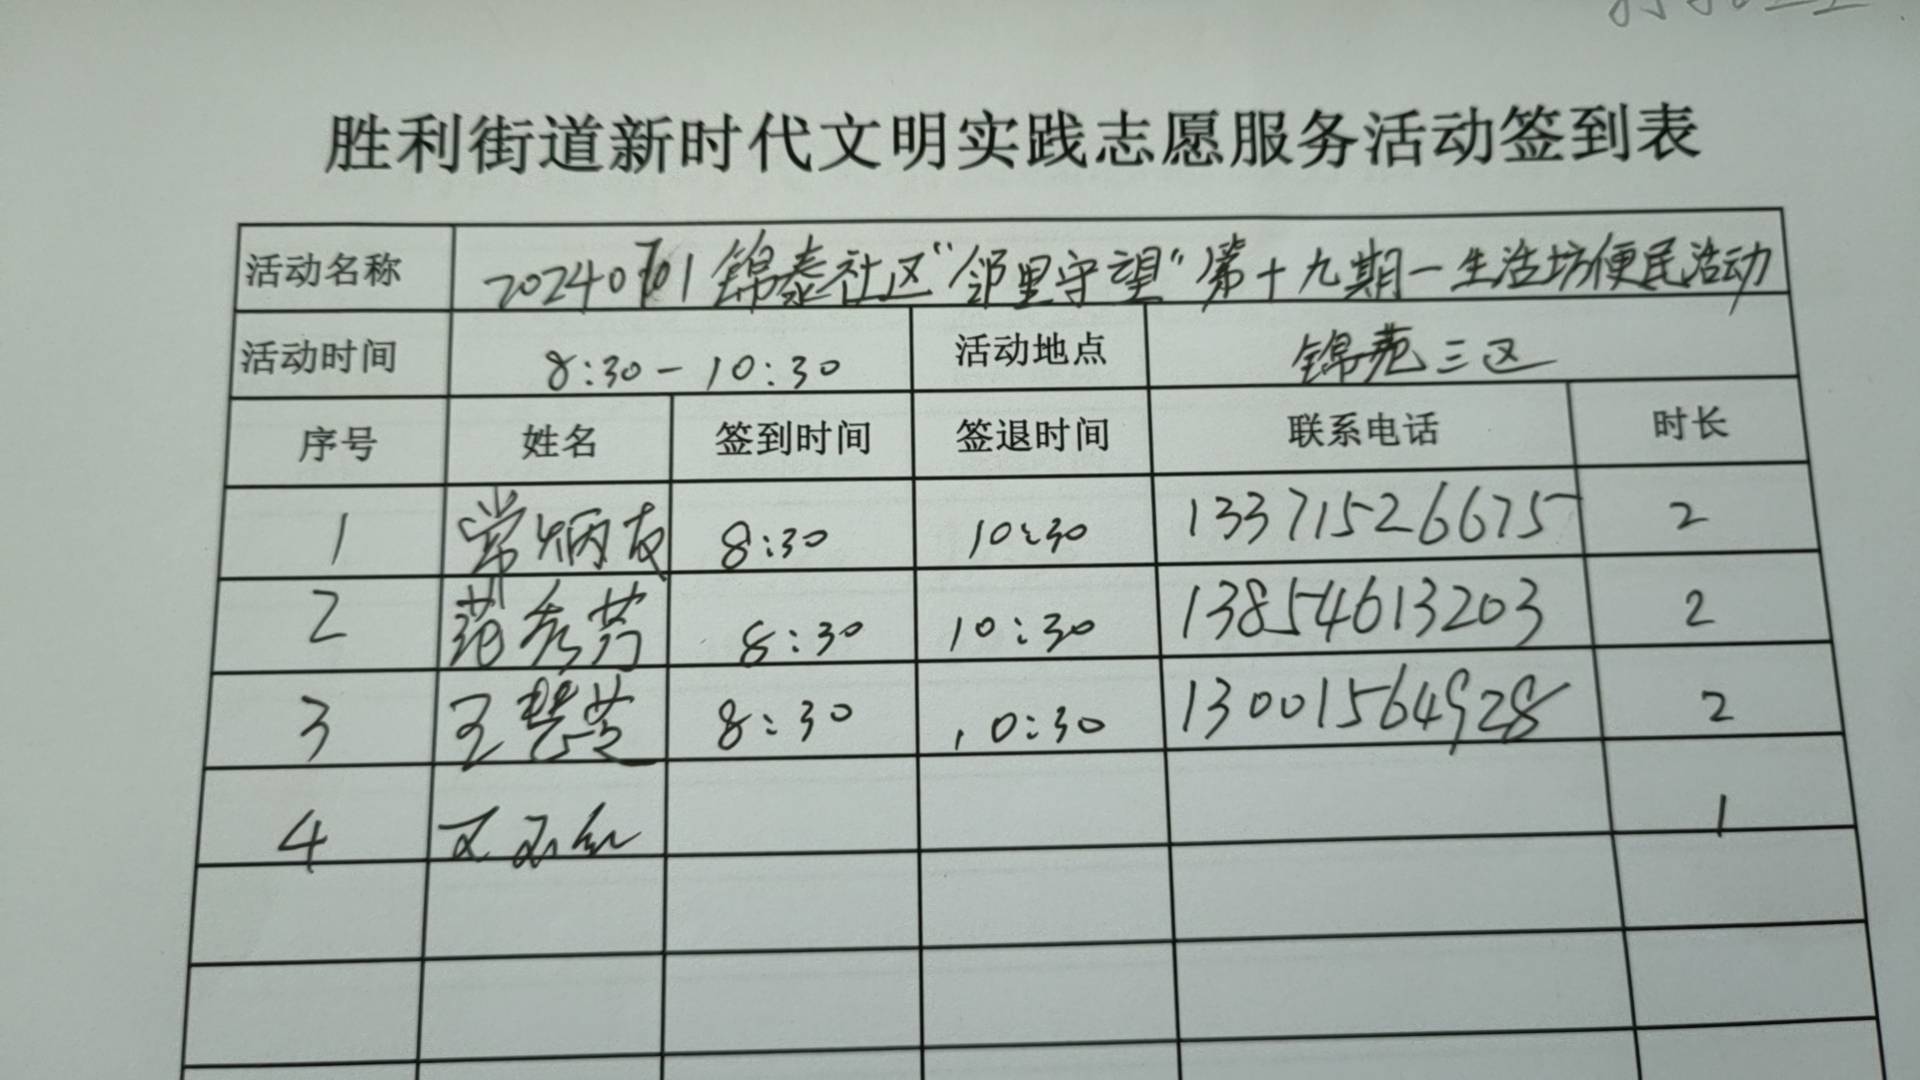 胜利街道新时代文明实践志愿服务活动签到表
活动名称 20240701锦泰社区“邻里守望”第十九期一生活坊便民活动
活动时间 8:30-10:30 活动地点 锦苑三区
序号 姓名 签到时间 签退时间 联系电话 时长
1 常炳友 8:30 10:30 13371526675 2
2 范秀芳 8:30 10:30 13854613203 2
3 王慧芝 8:30 10:30 13001564928 2
4 1